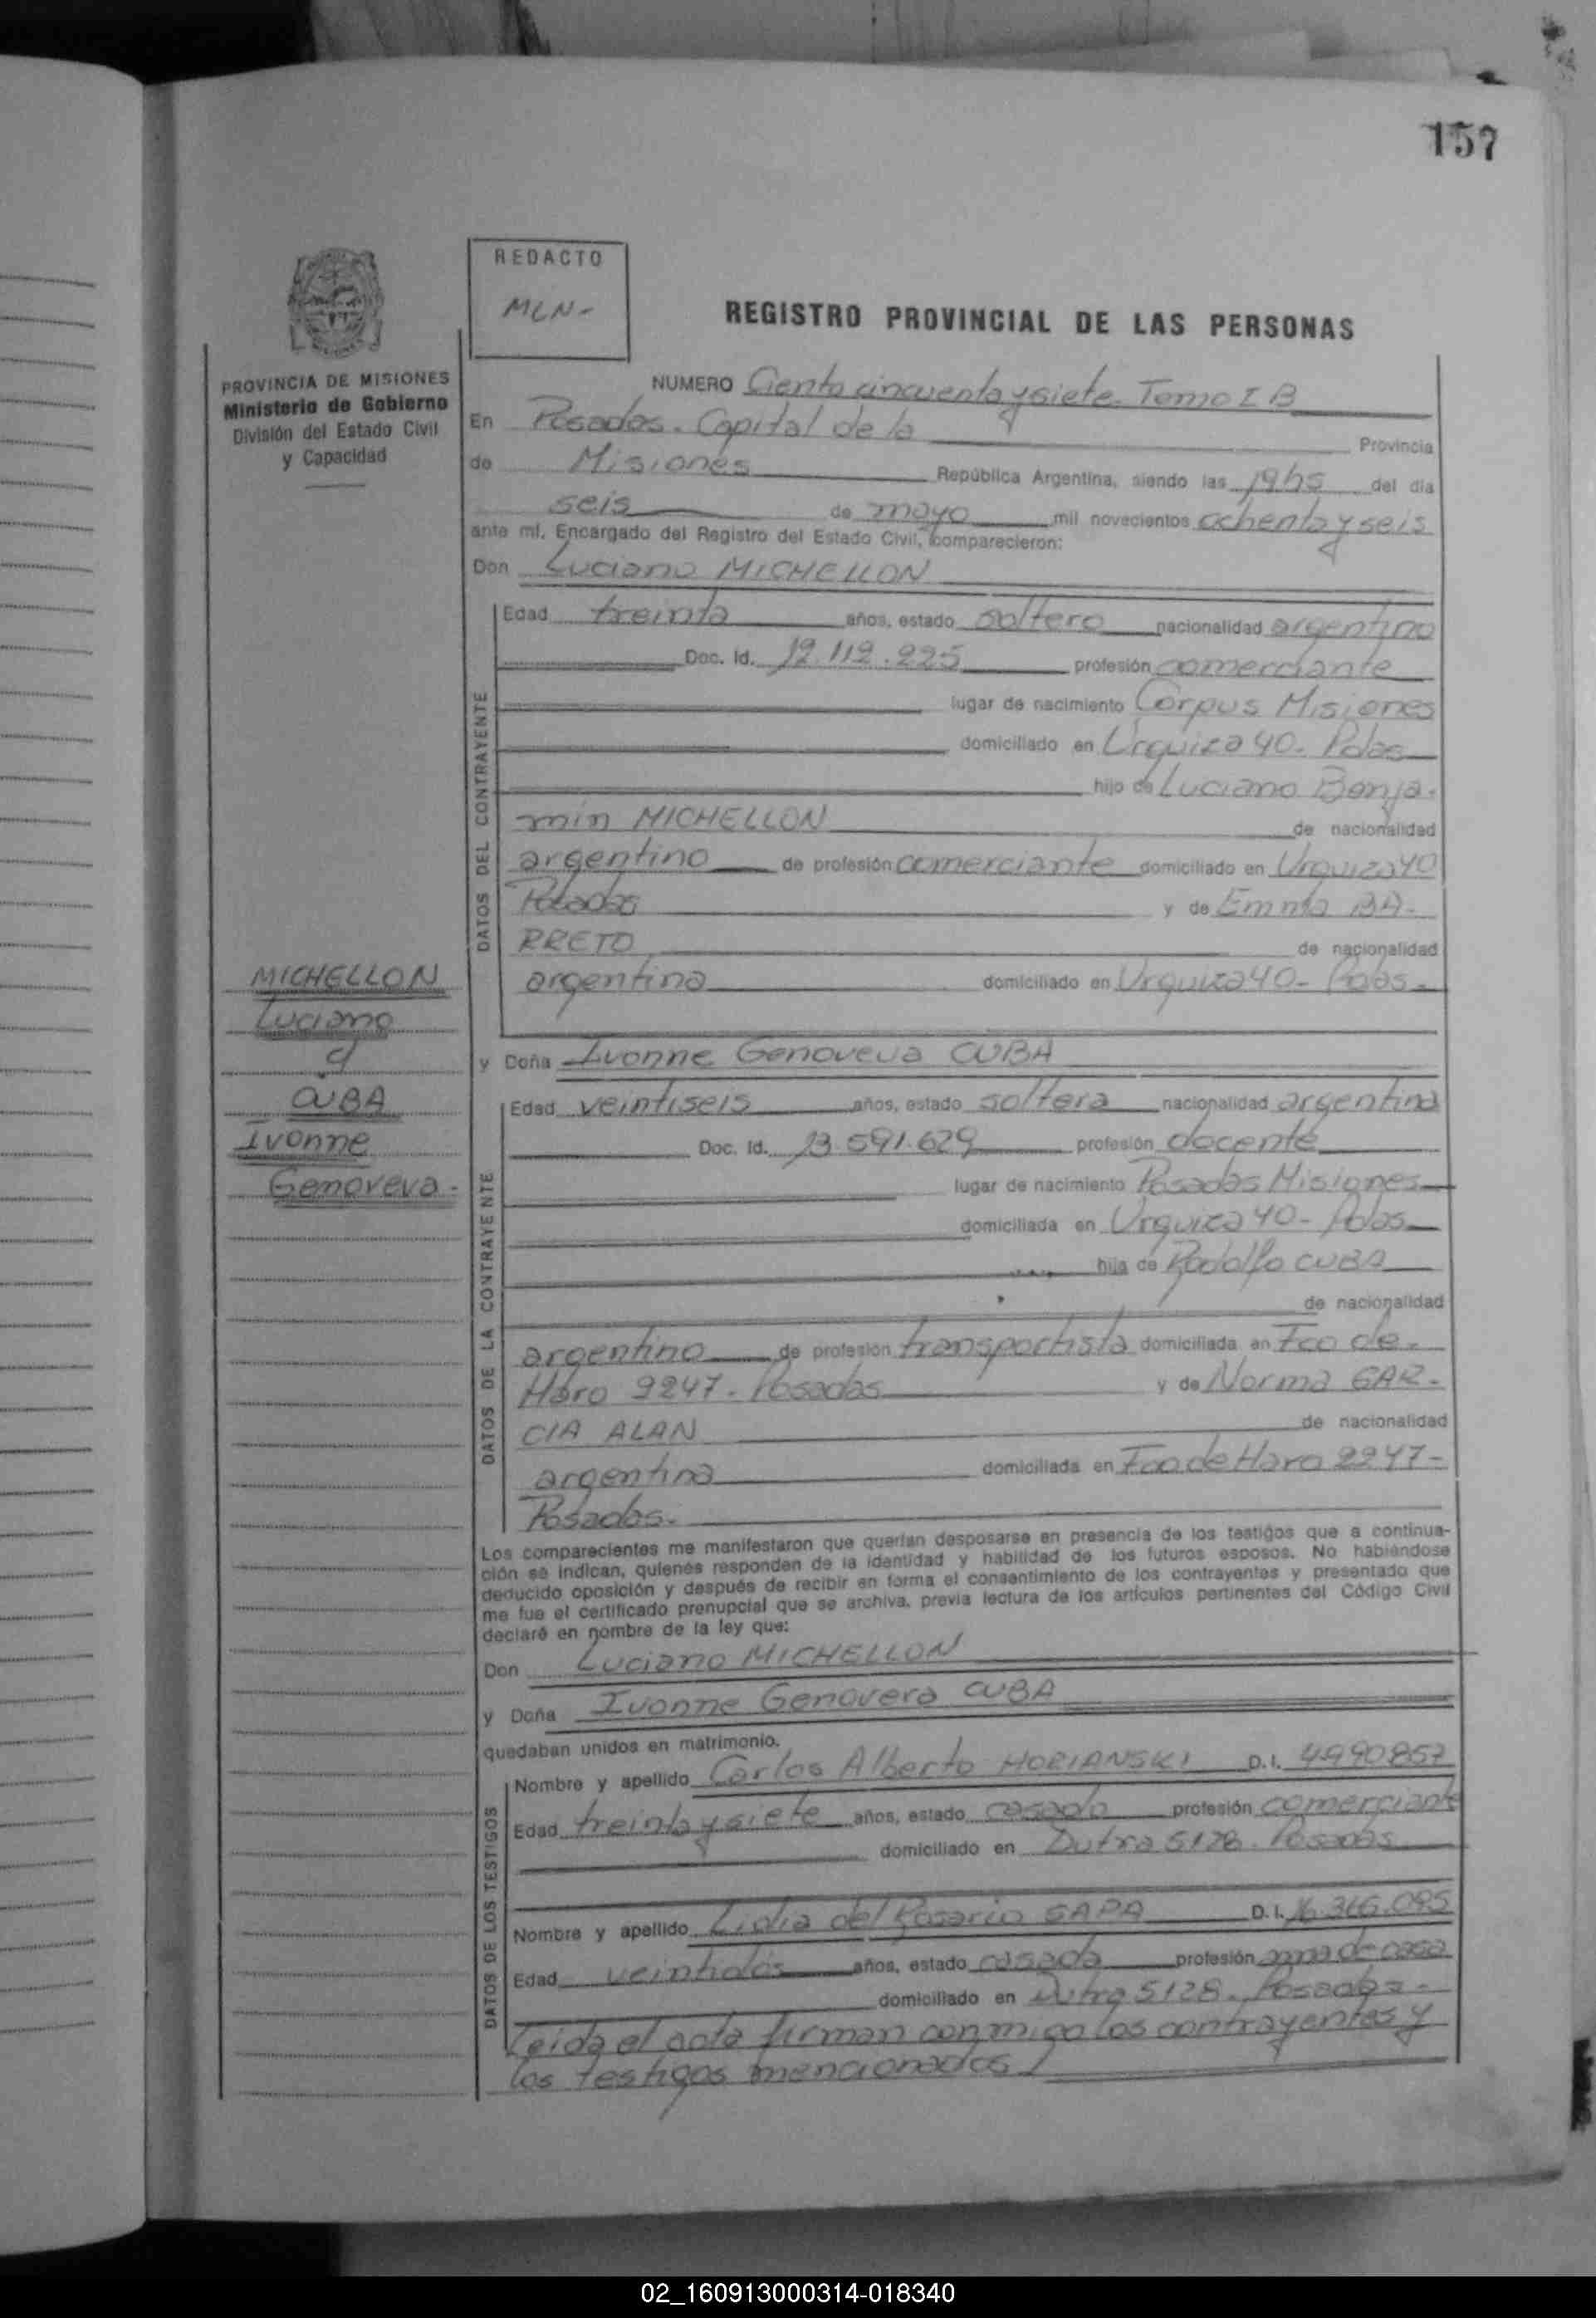 157
REDACTO
MLN-
REGISTRO PROVINCIAL DE LAS PERSONAS
PROVINCIA DE MISIONES
Ministerio de Gobierno
División del Estado Civil
y Capacidad
NUMERO Ciento cincuenta y siete. Tomo I B
En Posadas. Capital de la Provincia
de Misiones República Argentina, siendo las 19hs del día
seis de mayo mil novecientos ochenta y seis
ante mí, Encargado del Registro del Estado Civil, comparecieron:
Don Luciano MICHELLON
DATOS DEL CONTRAYENTE
Edad treinta años, estado soltero nacionalidad argentino
Doc. Id. 12.112.225 profesión comerciante
lugar de nacimiento Corpus Misiones
domiciliado en Urquiza 40. Pdas
hijo de Luciano Benja-
min MICHELLON de nacionalidad
argentino de profesión comerciante domiciliado en Urquiza 40
Posadas y de Emma BA-
RRETO de nacionalidad
argentina domiciliado en Urquiza 40- Pdas-
MICHELLON
Luciano
c/
CUBA
Ivonne
Genoveva-
y Doña Ivonne Genoveva CUBA
DATOS DE LA CONTRAYENTE
Edad veintiseis años, estado soltera nacionalidad argentina
Doc. Id. 13.591.629 profesión docente
lugar de nacimiento Posadas Misiones
domiciliada en Urquiza 40- Pdas
hija de Rodolfo CUBA
de nacionalidad
argentino de profesión transportista domiciliada en Fco de-
Haro 2247- Posadas y de Norma GAR-
CIA ALAN de nacionalidad
argentina domiciliada en Fco de Haro 2247-
Posadas-
Los comparecientes me manifestaron que querían desposarse en presencia de los testigos que a continua-
ción se indican, quienes responden de la identidad y habilidad de los futuros esposos. No habiéndose
deducido oposición y después de recibir en forma el consentimiento de los contrayentes y presentado que
me fue el certificado prenupcial que se archiva, previa lectura de los artículos pertinentes del Código Civil
declaré en nombre de la ley que:
Don Luciano MICHELLON
y Doña Ivonne Genoveva CUBA
quedaban unidos en matrimonio.
DATOS DE LOS TESTIGOS
Nombre y apellido Carlos Alberto HORIANSKI D.I. 4990857
Edad treinta y siete años, estado casado profesión comerciante
domiciliado en Dutra 5128. Posadas
Nombre y apellido Lidia del Rosario D.I. 16.366.095
Edad veintidos años, estado casada profesión ama de casa
domiciliado en Dutra 5128. Posadas-
Leida el acta firman conmigo los contrayentes y
los testigos mencionados/
02_160913000314-018340